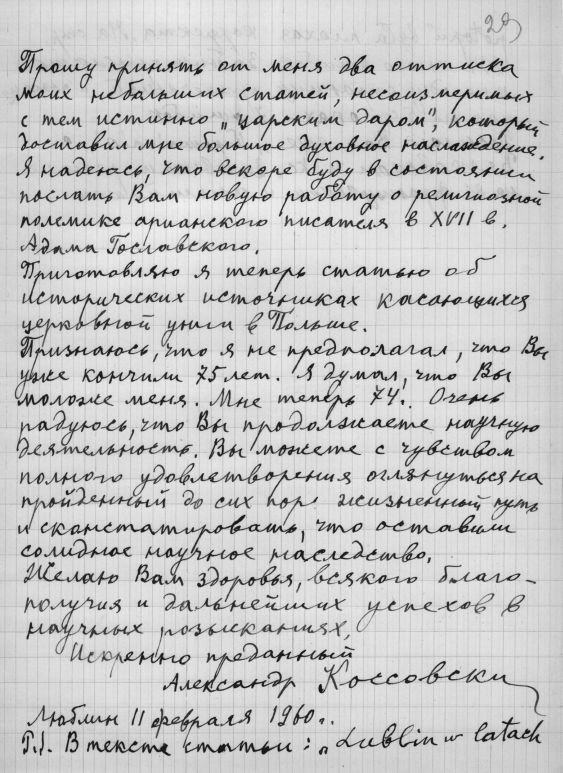 29
Прошу принять от меня два оттиска
моих небольших статей, несоизмеримых
с тем истинно „царским даром", который
доставил мне большое духовное наслаждение.
Я надеюсь, что вскоре буду в состоянии
послать Вам новую работу о религиозной
полемике арианского писателя в XVII в.
Адама Гославского.
Приготовляю я теперь статью об
исторических источниках касающихся
церковной унии в Польше.
Признаюсь, что я не предполагал, что Вы
уже кончили 75 лет. Я думал, что Вы
моложе меня. Мне теперь 74. Очень
радуюсь, что Вы продолжаете научную
деятельность. Вы можете с чувством
полного удовлетворения оглянуться на
пройденный до сих пор жизненный путь
и сконстатировать, что оставили
солидное научное наследство.
Желаю Вам здоровья, всякого благо-
получия и дальнейших успехов в
научных розысканиях,
Искренно преданный
Александр Коссовски
Люблин 11 февраля 1960 г.
В тексте статьи: „Lublin w latach